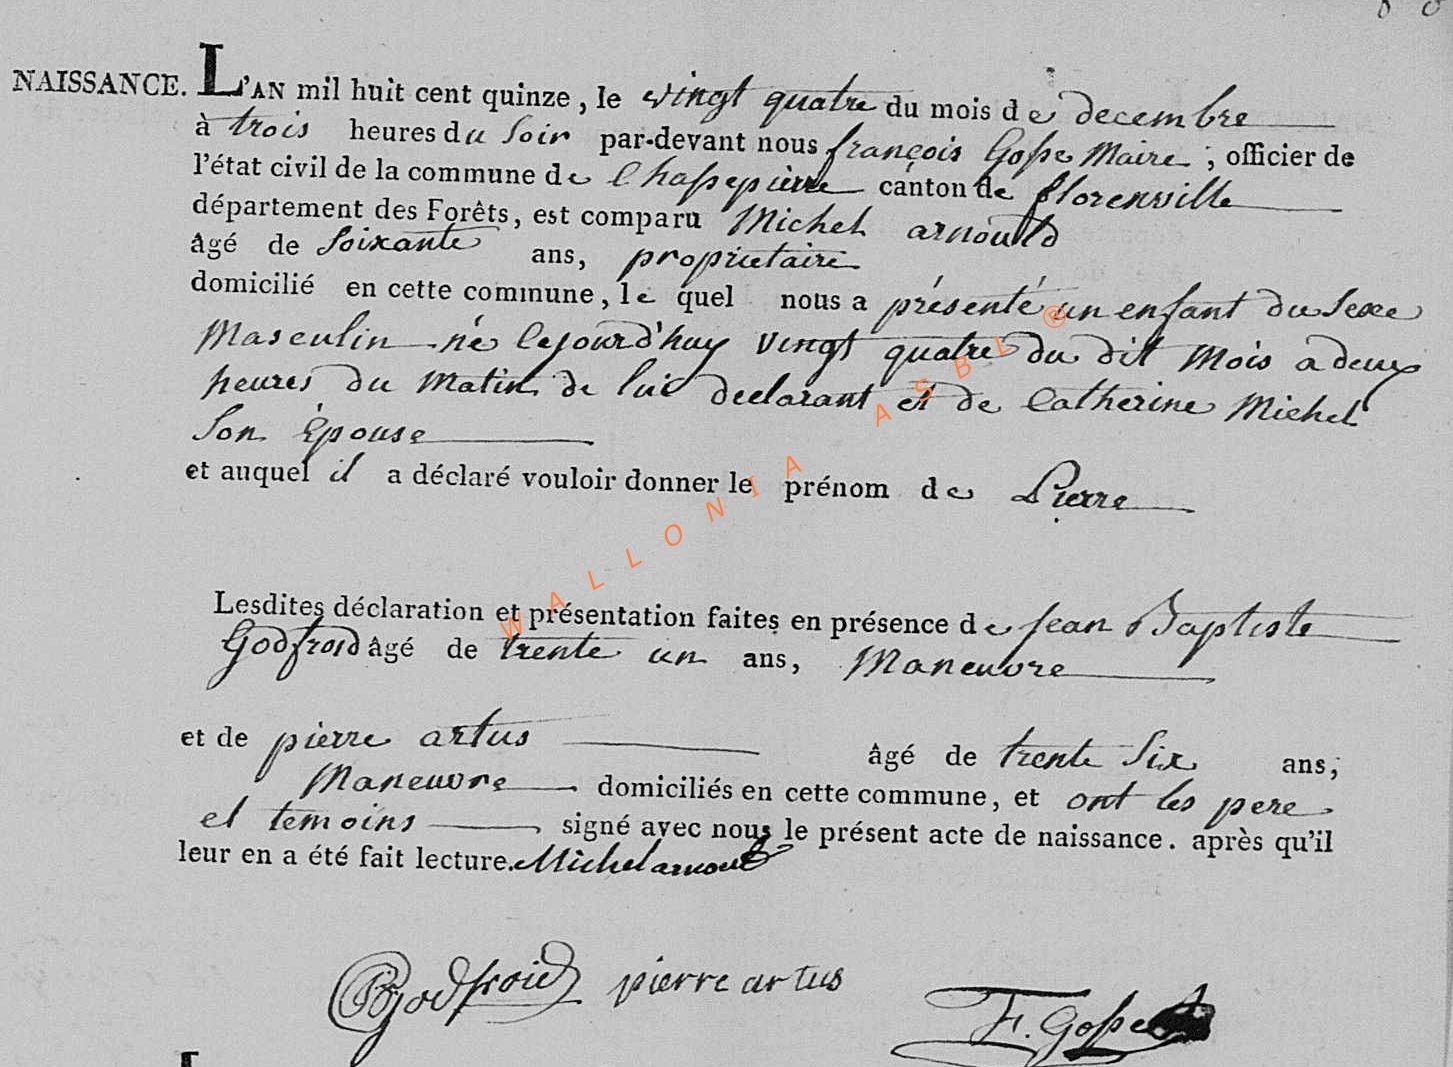 NAISSANCE. L'AN mil huit cent quinze, le vingt quatre du mois de decembre
à trois heures du soir par-devant nous françois Gosse Maire, officier de
l'état civil de la commune de Chassepierre canton de florenville
département des Forêts, est comparu Michel arnould
âgé de soixante ans, proprietaire
domicilié en cette commune, le quel nous a présenté un enfant du sexe
Masculin né cejourd'huy vingt quatre du dit mois a deux
heures du matin de lui declarant et de Catherine Michel
son Epouse
et auquel il a déclaré vouloir donner le prénom de Pierre
Lesdites déclaration et présentation faites en présence de jean Baptiste
Godfroid âgé de trente un ans, Maneuvre
et de pierre artus âgé de trente six ans,
Maneuvre domiciliés en cette commune, et ont les pere
et temoins signé avec nous le présent acte de naissance. après qu'il
leur en a été fait lecture. Michel arnould
JBGodfroid pierre artus F. Gosse
WALLONIA ASBL ®